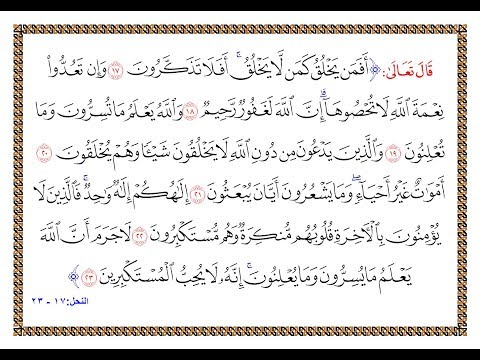 قَالَ تَعَالَىٰ: ﴿ أَفَمَن يَخْلُقُ كَمَن لَّا يَخْلُقُ ۗ أَفَلَا تَذَكَّرُونَ ۝١٧ وَإِن تَعُدُّوا۟
نِعْمَةَ ٱللَّهِ لَا تُحْصُوهَآ ۗ إِنَّ ٱللَّهَ لَغَفُورٌ رَّحِيمٌ ۝١٨ وَٱللَّهُ يَعْلَمُ مَا تُسِرُّونَ وَمَا
تُعْلِنُونَ ۝١٩ وَٱلَّذِينَ يَدْعُونَ مِن دُونِ ٱللَّهِ لَا يَخْلُقُونَ شَيْـًٔا وَهُمْ يُخْلَقُونَ ۝٢٠
أَمْوَٰتٌ غَيْرُ أَحْيَآءٍ ۖ وَمَا يَشْعُرُونَ أَيَّانَ يُبْعَثُونَ ۝٢١ إِلَـٰهُكُمْ إِلَـٰهٌ وَٰحِدٌ ۚ فَٱلَّذِينَ لَا
يُؤْمِنُونَ بِٱلْـَٔاخِرَةِ قُلُوبُهُم مُّنكِرَةٌ وَهُم مُّسْتَكْبِرُونَ ۝٢٢ لَا جَرَمَ أَنَّ ٱللَّهَ
يَعْلَمُ مَا يُسِرُّونَ وَمَا يُعْلِنُونَ ۚ إِنَّهُۥ لَا يُحِبُّ ٱلْمُسْتَكْبِرِينَ ۝٢٣ ﴾
النحل: ١٧ - ٢٣